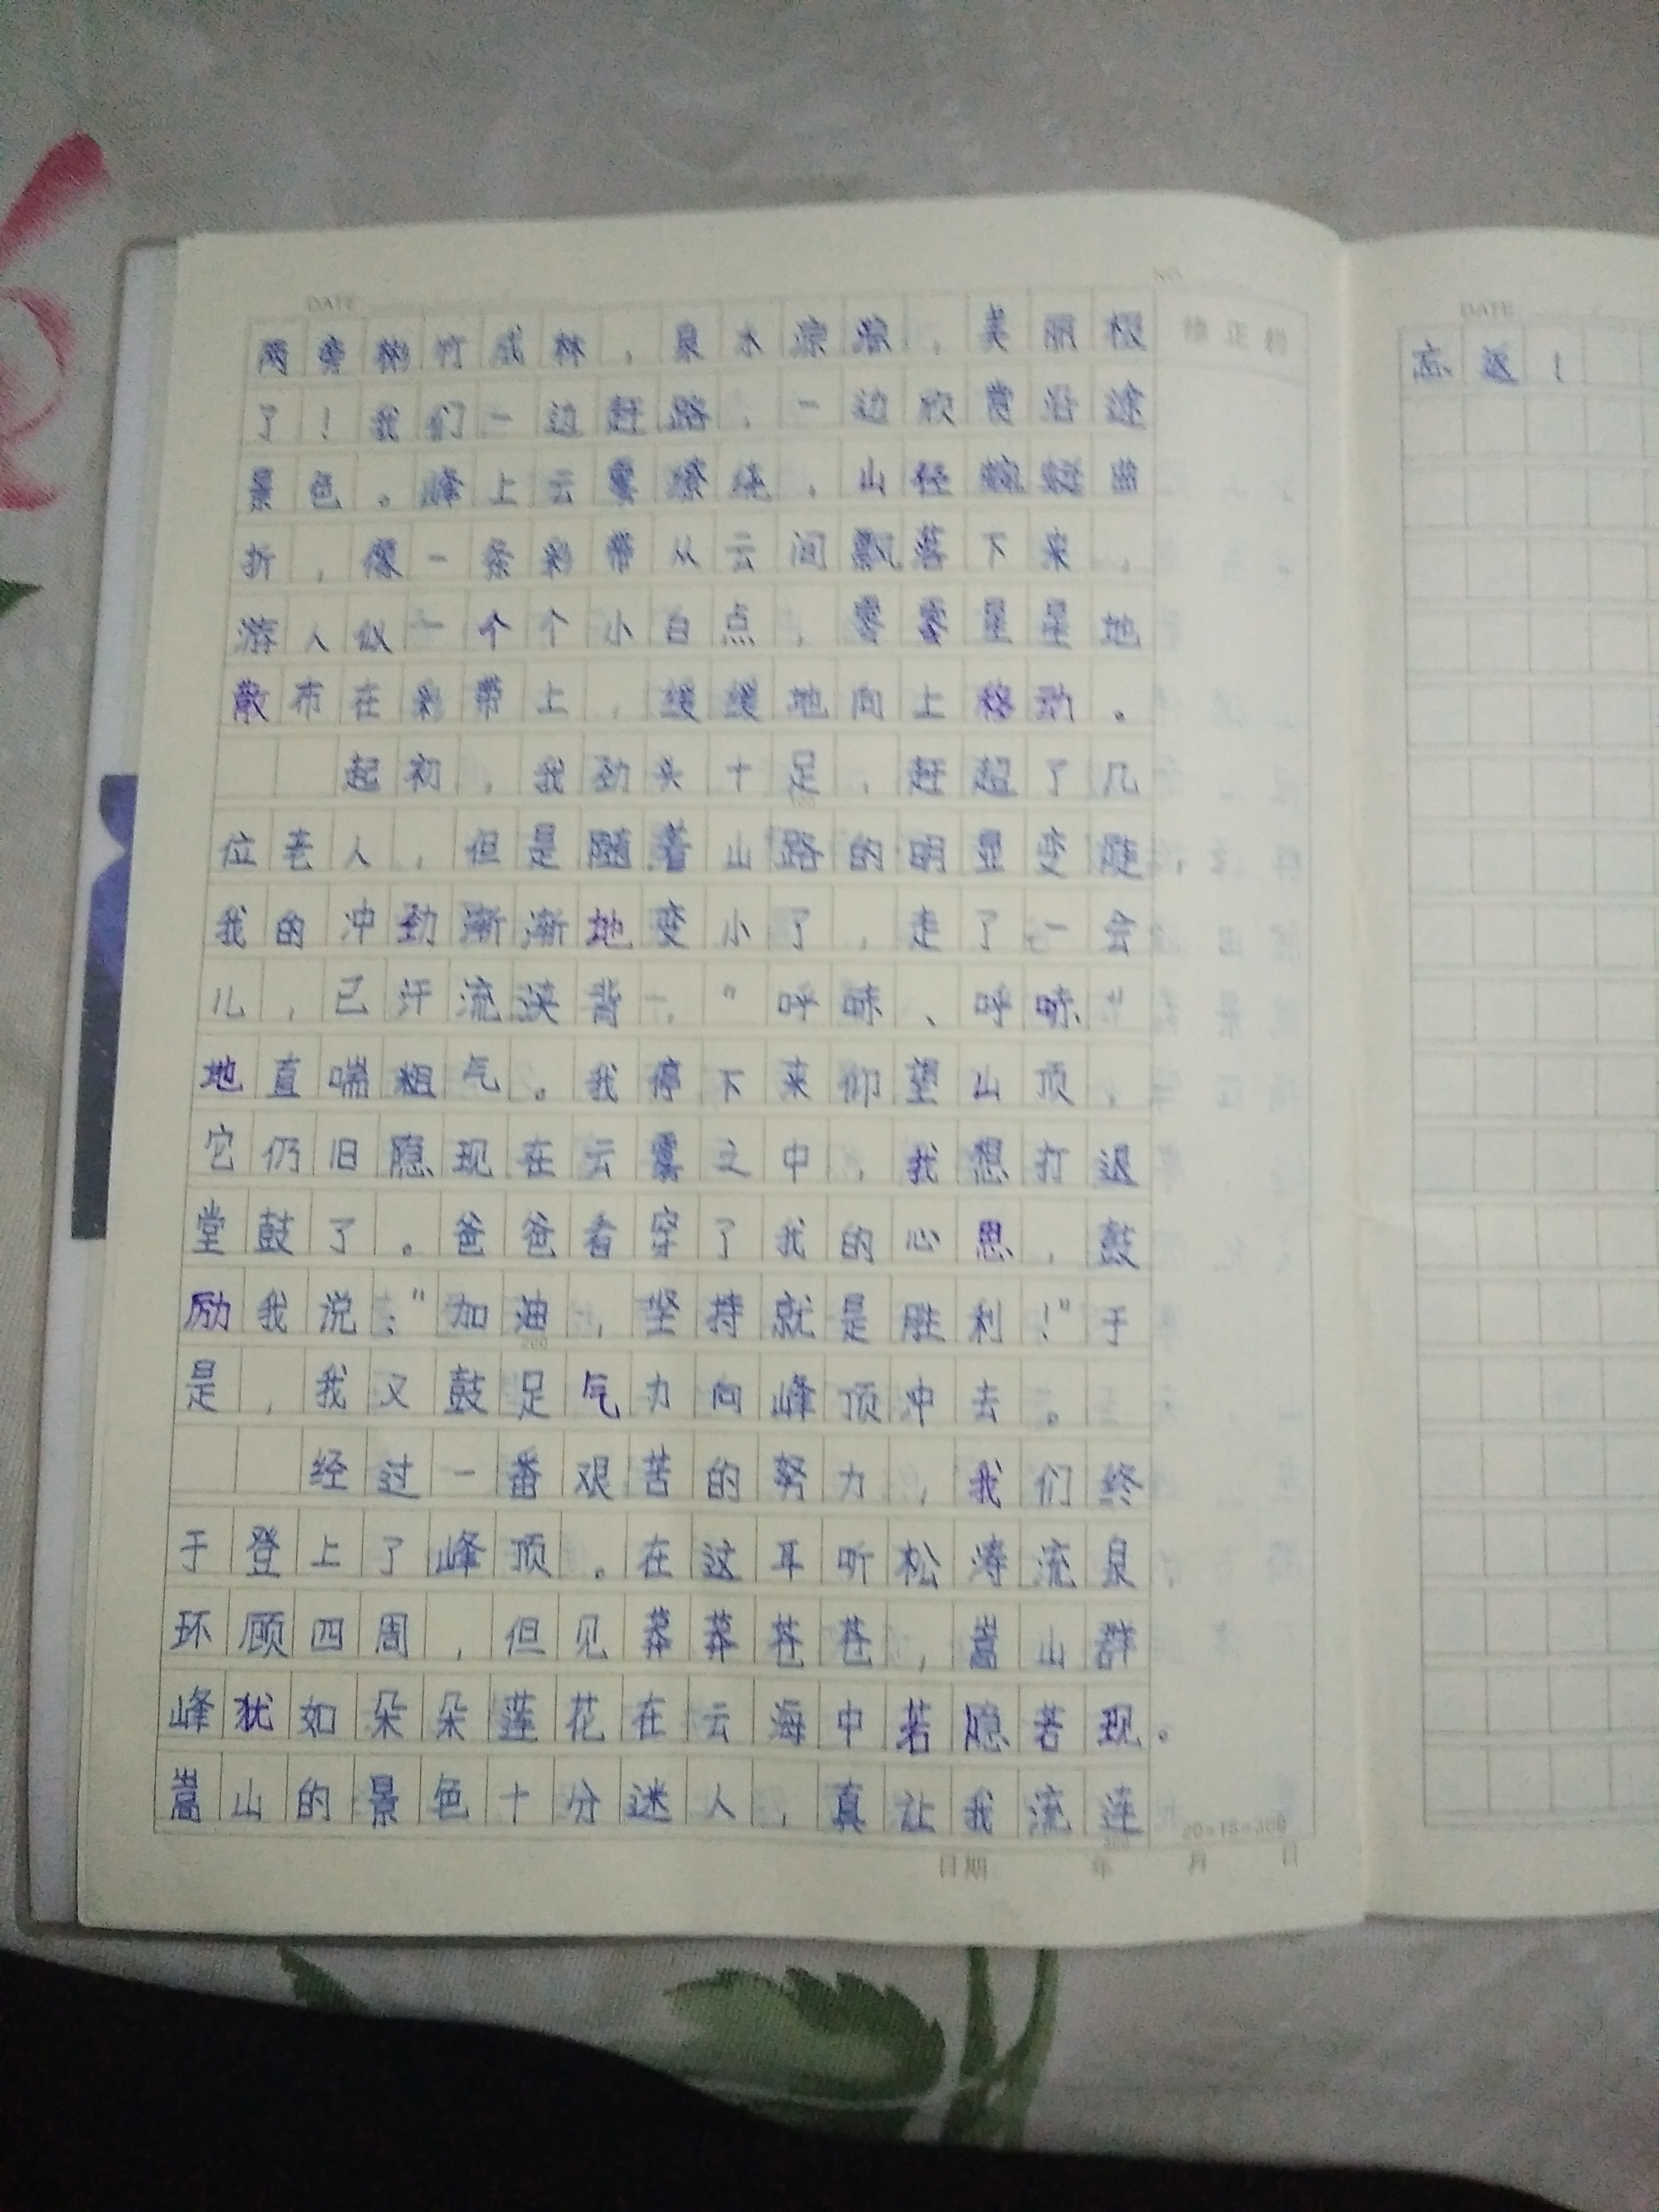 DATE
两旁彬竹成林，泉水淙淙，美丽极
了！我们一边赶路，一边欣赏沿途
景色。峰上云雾缭绕，山径蜿蜒曲
折，像一条彩带从云间飘落下来，
游人似一个个小白点，零零星星地
散布在彩带上，缓缓地向上移动。
起初，我劲头十足，赶超了几
位老人，但是随着山路的明显变陡，
我的冲劲渐渐地变小了，走了一会
儿，已汗流浃背，“呼哧、呼哧”
地直喘粗气。我停下来仰望山顶，
它仍旧隐现在云雾之中，我想打退
堂鼓了。爸爸看穿了我的心思，鼓
励我说：“加油，坚持就是胜利！”于
是，我又鼓足气力向峰顶冲去。
经过一番艰苦的努力，我们终
于登上了峰顶。在这耳听松涛流泉，
环顾四周，但见莽莽苍苍，嵩山群
峰犹如朵朵莲花在云海中若隐若现。
嵩山的景色十分迷人，真让我流连
20×15=300
日期 年 月 日
DATE
忘返！